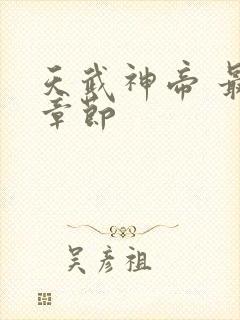 天武神帝 最
章節
吴彦祖